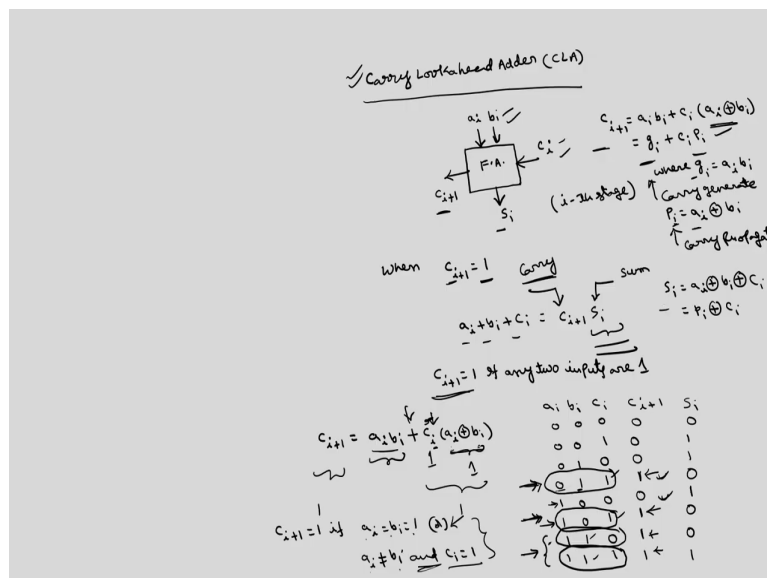 Carry Lookahead Adder (CLA)
aᵢ bᵢ
F.A.
cᵢ
cᵢ₊₁
sᵢ
(i-th stage)
cᵢ₊₁ = aᵢbᵢ + cᵢ (aᵢ⊕bᵢ)
= gᵢ + cᵢ pᵢ
where gᵢ = aᵢbᵢ
Carry generate
pᵢ = aᵢ⊕bᵢ
When cᵢ₊₁ = 1 Carry
sum
sᵢ = aᵢ⊕bᵢ⊕cᵢ
= pᵢ⊕cᵢ
aᵢ + bᵢ + cᵢ = cᵢ₊₁ sᵢ
cᵢ₊₁ = 1 if any two inputs are 1
cᵢ₊₁ = aᵢbᵢ + cᵢ (aᵢ⊕bᵢ)
1 1
1 1
cᵢ₊₁ = 1 if aᵢ = bᵢ = 1
aᵢ ≠ bᵢ and cᵢ = 1
aᵢ bᵢ cᵢ cᵢ₊₁ sᵢ
0 0 0 0 0
0 0 1 0 1
0 1 0 0 1
0 1 1 1 0
1 0 0 0 1
1 0 1 1 0
1 1 0 1 0
1 1 1 1 1